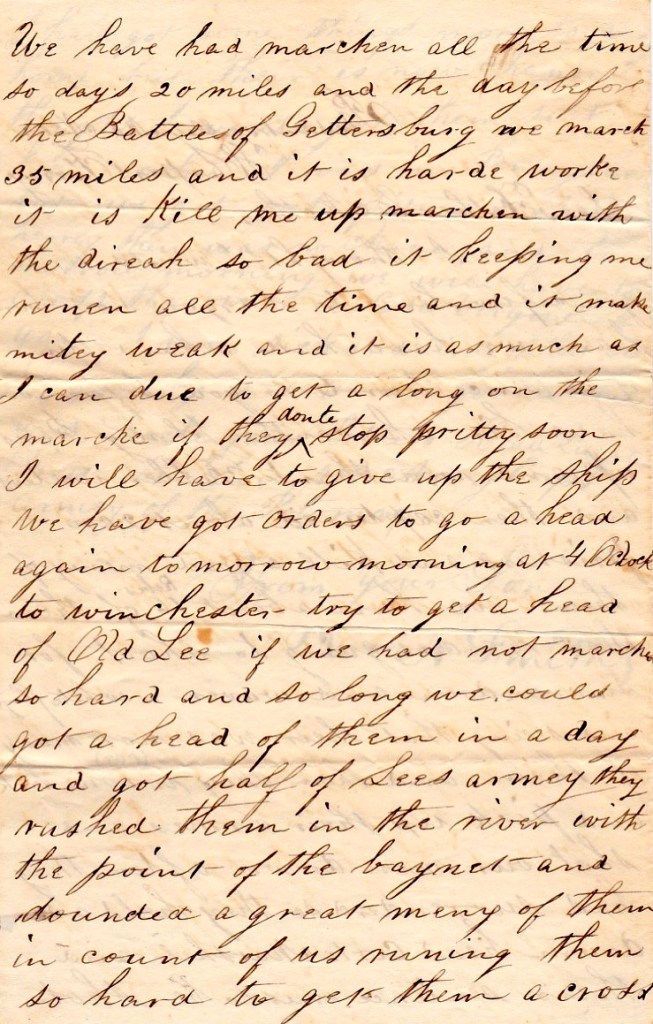 We have had marchen all the time
so days 20 miles and the day before
the Battles of Gettersburg we march
35 miles and it is harde worke
it is Kill me up marchen with
the direah so bad it keeping me
runen all the time and it make
mitey weak and it is as much as
I can due to get a long on the
marche if they doute stop pritty soon
I will have to give up the ship
We have got orders to go a head
again to morrow morning at 4 Oclock
to winchester try to get a head
of Old Lee if we had not marche
so hard and so long we could
got a head of them in a day
and got half of Lees armey they
rushed them in the river with
the point of the baynet and
dounded a great meny of them
in count of us runing them
so hard to get them a cross